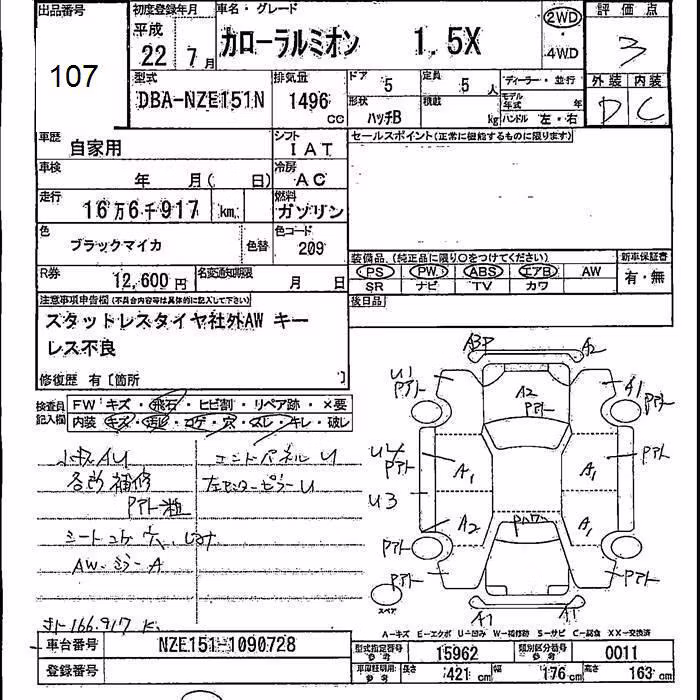 出品番号 初度登録年月 車名・グレード 評価点
107 平成 22年 7月 カローラルミオン 1.5X 2WD・4WD 3
型式 排気量 ドア 5 定員 5人 ディーラー・並行 外装 内装
DBA-NZE151N 1496cc 形状 ハッチB 積載 kg モデル年式 年 ハンドル 左・右 D C
車歴 自家用 シフト IAT セールスポイント(正常に機能するものに限ります)
車検 年 月( 日) 冷房 AC
走行 16万6千917 km 燃料 ガソリン
色 ブラックマイカ 色替 色コード 209
装備品(純正品に限り○をつけてください) 新車保証書
PS PW ABS エアB AW 有・無
SR ナビ TV カワ
R券 12,600円 名変通知期限 月 日
後日品
注意事項申告欄(不具合内容等は具体的に記入して下さい)
スタットレスタイヤ社外AW キー
レス不良
修復歴 有〔箇所 〕
検査員記入欄 FW:キズ・飛石・ヒビ割・リペア跡・×要
内装・キズ・汚レ・コゲ・穴・スレ・キレ・破レ
小キズAU エンドパネルU
各所補修 左センターピラーU
Pアト粗
シートコゲ穴
AW・ミラーA
166.917K
A3P A2
U1 Pアト A2 Pアト A1 Pアト
U4 Pアト A1 A1 Pアト
U3 A2 A1
Pアト Pアト
Pアト
スペア A1 A1
A-キズ E-エクボ U-凹み W-補修跡 S-サビ C-腐食 XX-交換済
車台番号 NZE151-1090728 型式指定番号 参考 15962 類別区分番号 参考 0011
登録番号 車庫証明用 参考 長さ 421cm 幅 176cm 高さ 163cm